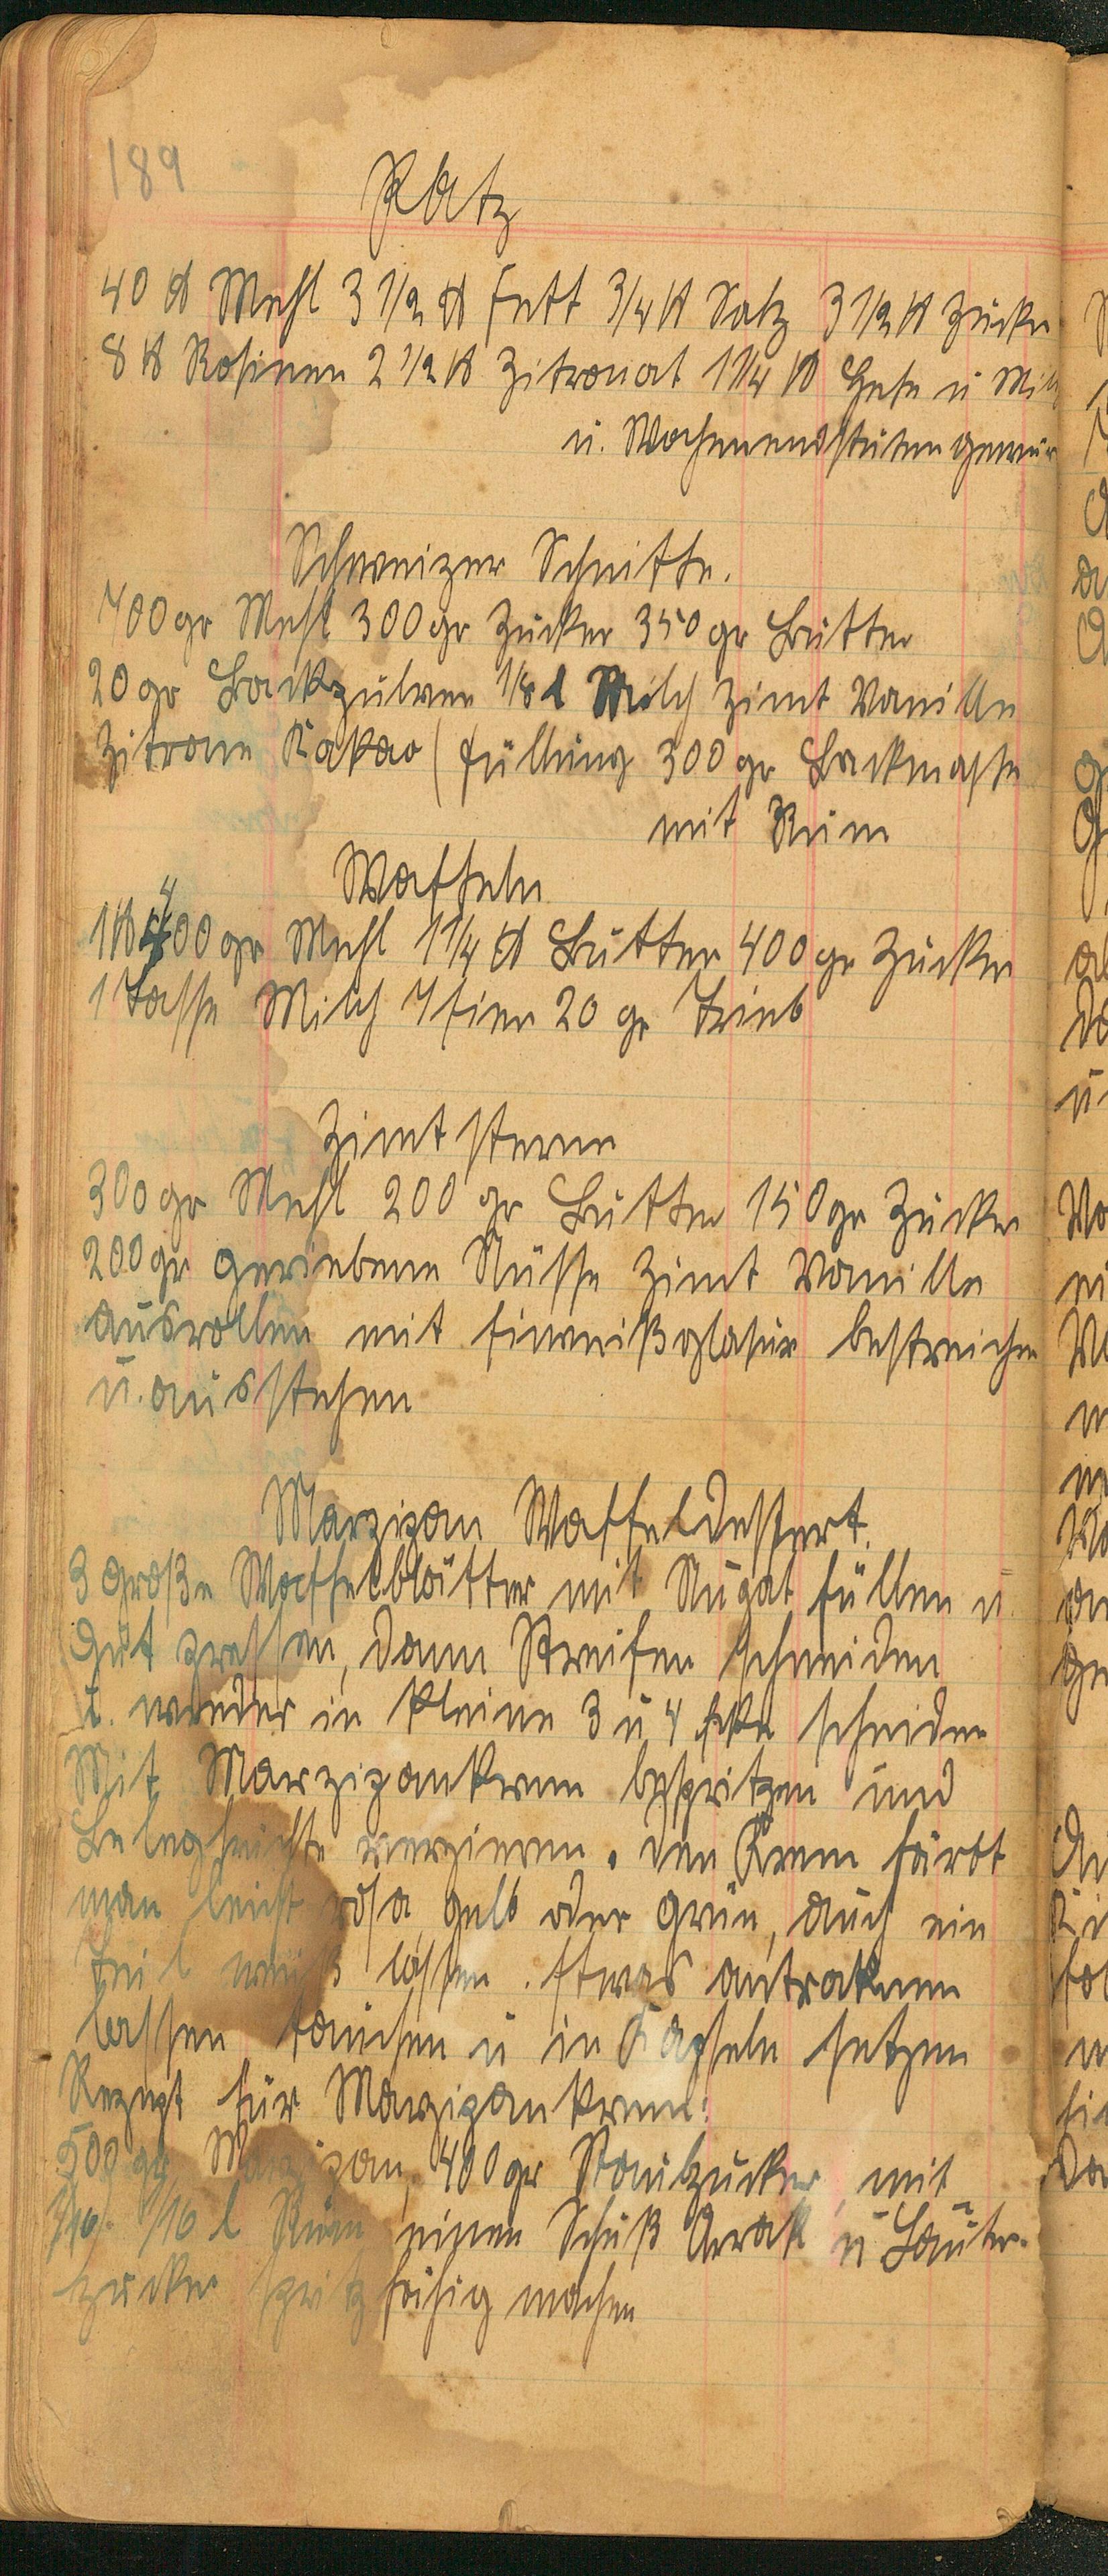 189
Platz
40 ℔ Mehl 3 1/2 ℔ Fett 3/4 ℔ Salz 3 1/2 ℔ Zucke
8 ℔ Rosinen 2 1/2 ℔ Zitronat 1 1/4 ℔ Hefe u Mil
u. Wochenendstutengewür
Schweizer Schnitte.
700 gr Mehl 300 gr Zucker 350 gr Butter
20 gr Backpulver 1/8 l Milch Zimt Vanille
Zitrone Kakao (Füllung 300 gr Backmasse
mit Rum
Waffeln
1 ℔ 400 gr Mehl 1 1/4 ℔ Butter 400 gr Zucker
1 Tasse Milch 7 Eier 20 gr Trieb
Zimtsterne
300 gr Mehl 200 gr Butter 150 gr Zucker
200 gr geriebene Nüsse Zimt Vanille
ausrollen mit Eiweißglasur bestreichen
u. ausstehen
Marzipan Waffeldessert.
3 große Waffelblätter mit Nugat füllen u.
gut pressen, dann Streifen schneiden
u. wieder in kleine 3 u 4 Ecke scheiden
Mit Marzipankrem bespritzen und
Belegfrüchte verzieren. Den Krem färbt
man leicht rosa gelb oder grün, auch ein
Teil weiß lassen. Etwas antroknen
lassen tauchen u in Kapseln setzen
Rezept für Marzipankrem:
500 gr Marzipan, 400 gr Staubzucker, mit
1/16 l Rum einen Schuß Arrak u Läuter-
zucker spritzfähig machen